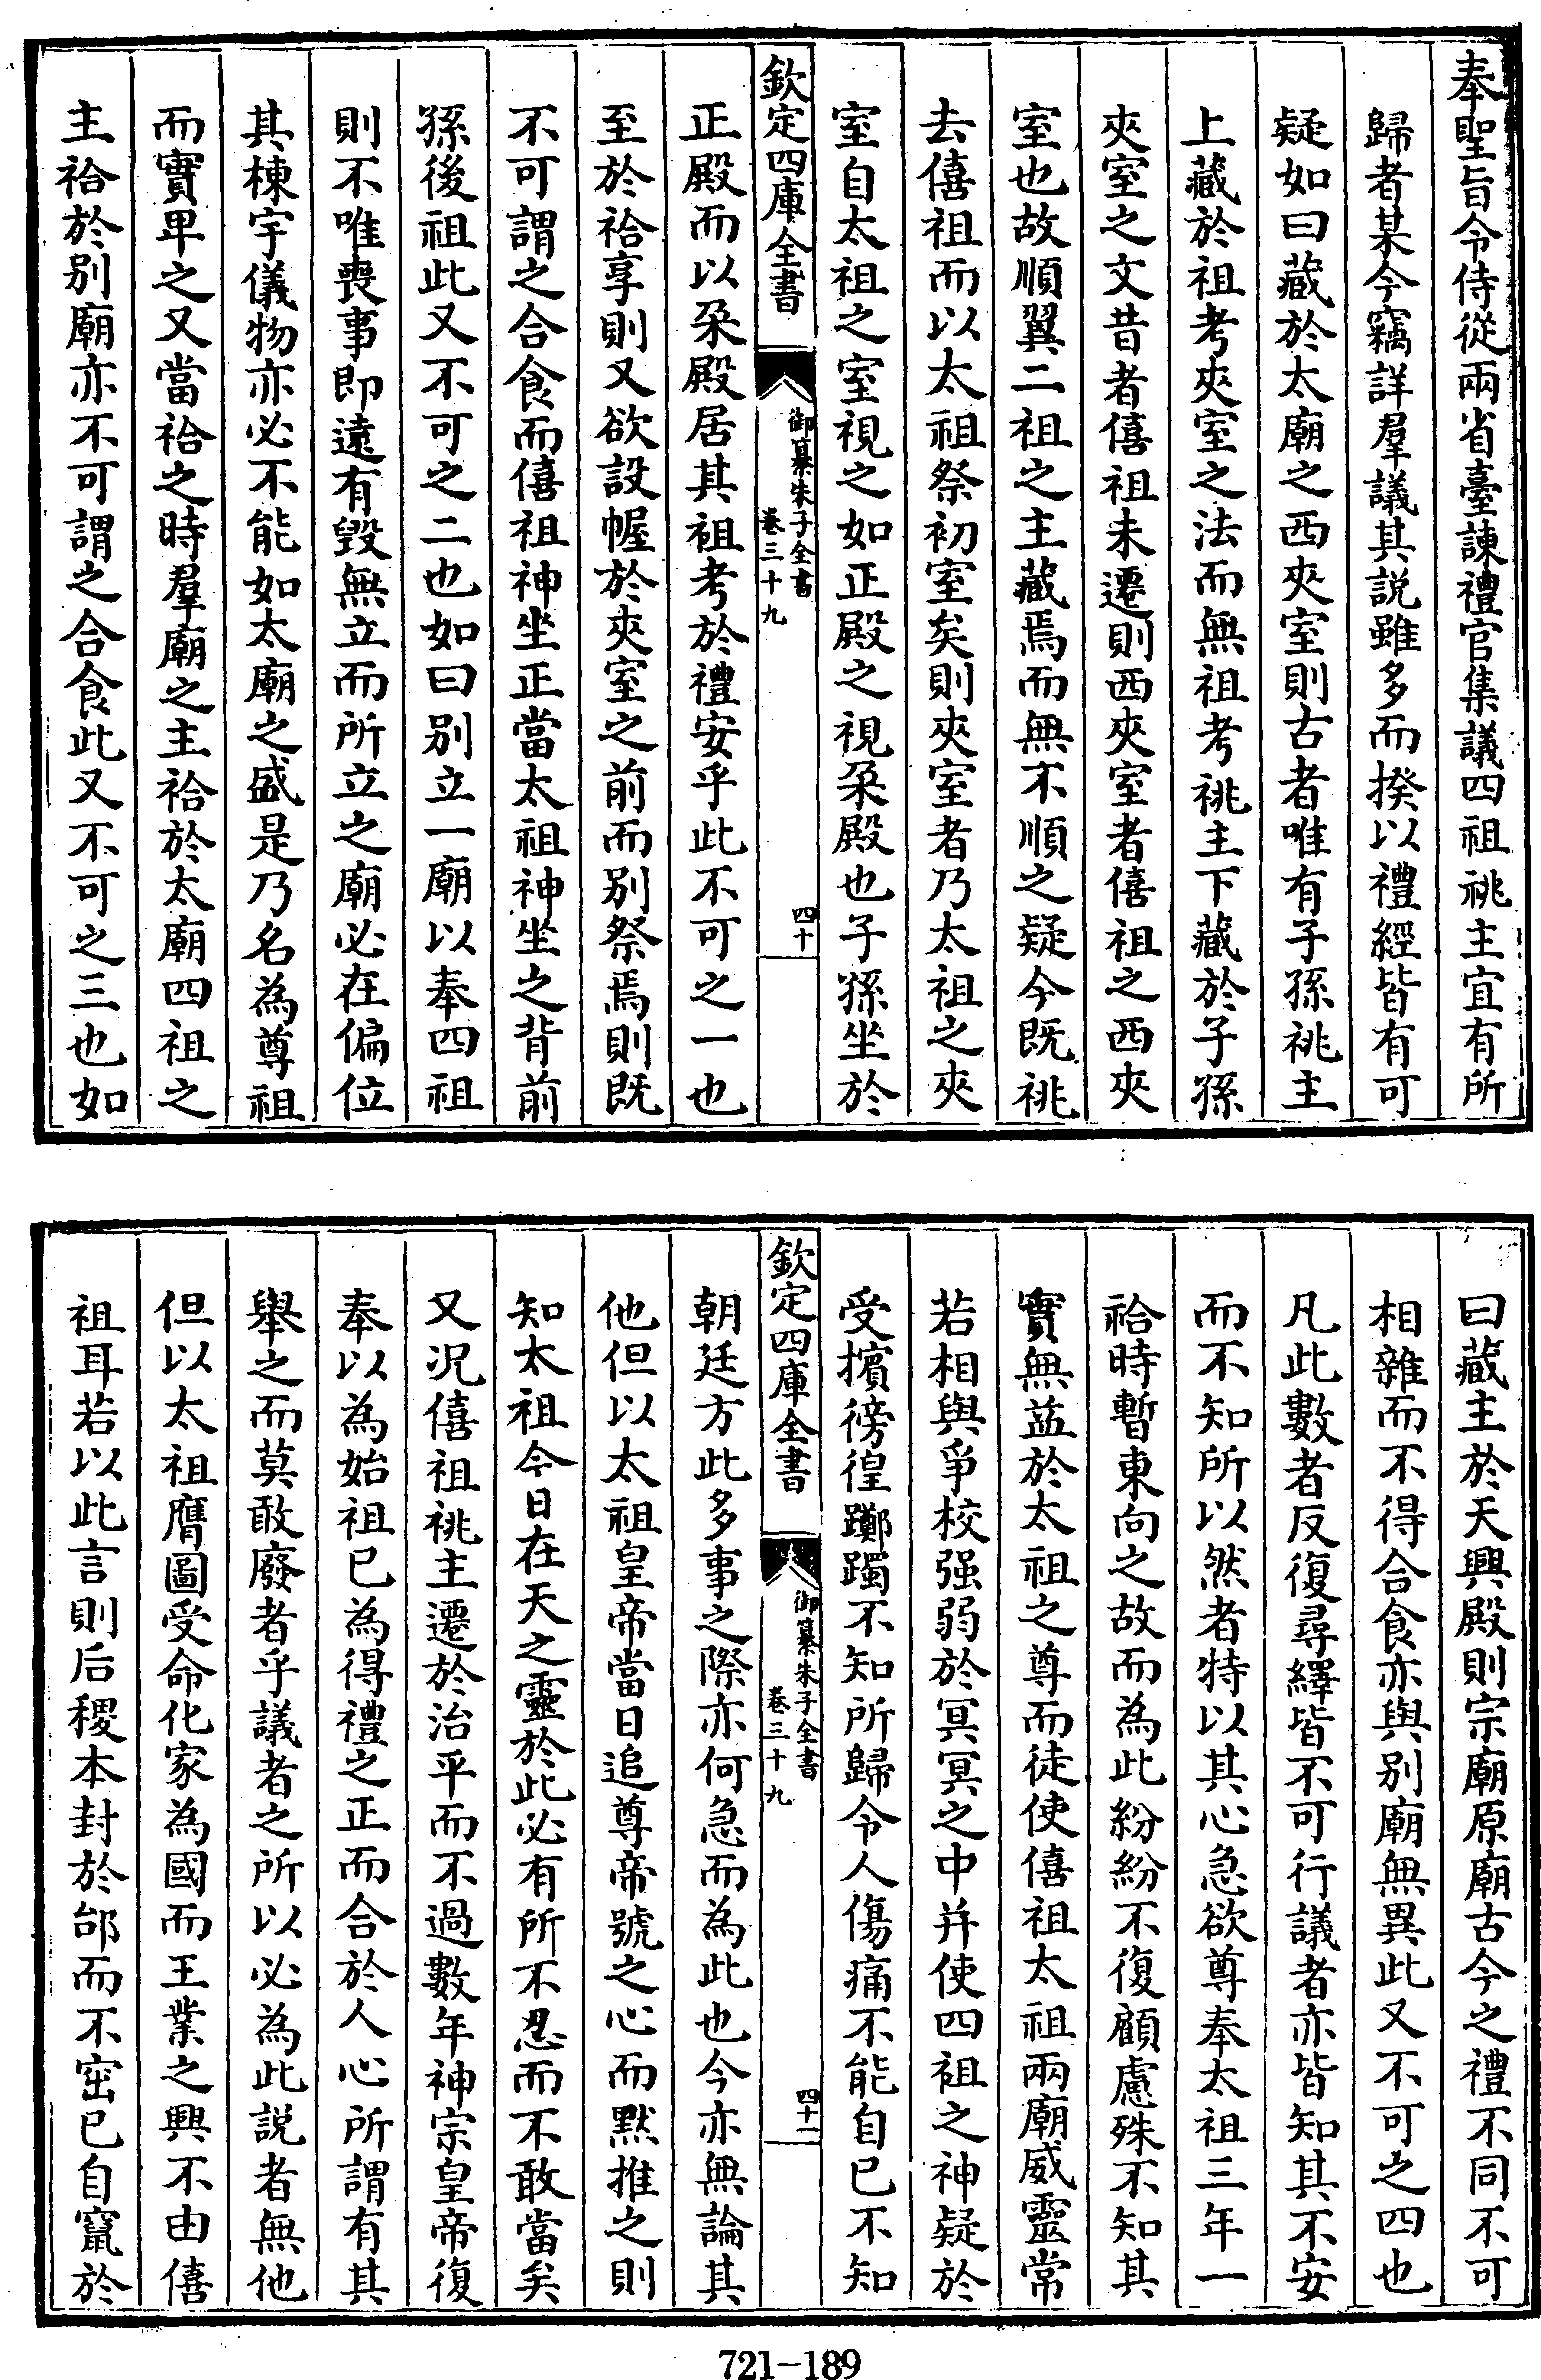 奉聖旨令侍從兩省臺諫禮官集議四祖祧主宜有所
歸者某今竊詳羣議其説雖多而揆以禮經皆有可
疑如曰藏於太廟之西夾室則古者唯有子孫祧主
上藏於祖考夾室之法而無祖考祧主下藏於子孫
夾室之文昔者僖祖未遷則西夾室者僖祖之西夾
室也故順翼二祖之主藏焉而無不順之疑今既祧
去僖祖而以太祖祭初室矣則夾室者乃太祖之夾
室自太祖之室視之如正殿之視朶殿也子孫坐於
欽定四庫全書
御纂朱子全書
卷三十九
四十
正殿而以朶殿居其祖考於禮安乎此不可之一也
至於祫享則又欲設幄於夾室之前而别祭焉則既
不可謂之合食而僖祖神坐正當太祖神坐之背前
孫後祖此又不可之二也如曰别立一廟以奉四祖
則不唯喪事即遠有毀無立而所立之廟必在偏位
其棟宇儀物亦必不能如太廟之盛是乃名為尊祖
而實卑之又當祫之時羣廟之主祫於太廟四祖之
主祫於别廟亦不可謂之合食此又不可之三也如
曰藏主於天興殿則宗廟原廟古今之禮不同不可
相雜而不得合食亦與别廟無異此又不可之四也
凡此數者反復尋繹皆不可行議者亦皆知其不安
而不知所以然者特以其心急欲尊奉太祖三年一
祫時暫東向之故而為此紛紛不復顧慮殊不知其
實無益於太祖之尊而徒使僖祖太祖兩廟威靈常
若相與爭校强弱於冥冥之中并使四祖之神疑於
受擯徬徨躑躅不知所歸令人傷痛不能自已不知
欽定四庫全書
御纂朱子全書
卷三十九
四十一
朝廷方此多事之際亦何急而為此也今亦無論其
他但以太祖皇帝當日追尊帝號之心而默推之則
知太祖今日在天之靈於此必有所不忍而不敢當矣
又况僖祖祧主遷於治平而不過數年神宗皇帝復
奉以為始祖已為得禮之正而合於人心所謂有其
舉之而莫敢廢者乎議者之所以必為此説者無他
但以太祖膺圖受命化家為國而王業之興不由僖
祖耳若以此言則后稷本封於邰而不窋已自竄於
721-189